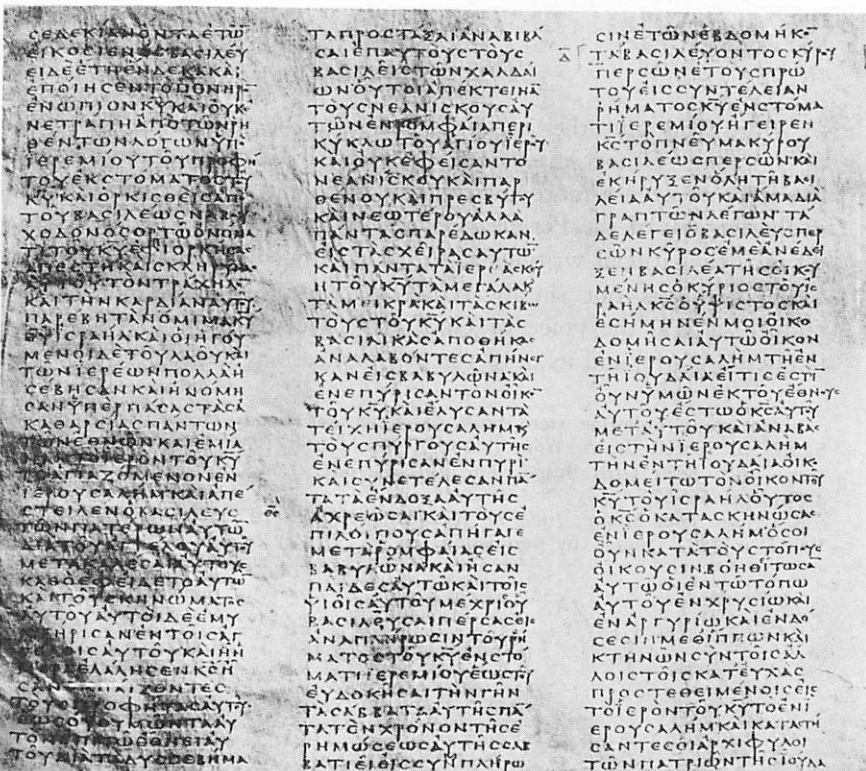 ϹΕΔΕΚΙΑΝΟΝΤΑΕΤΩ
ΕΙΚΟϹΙΕΝΟϹΒΑϹΙΛΕΥ
ΕΙΔΕΕΤΗΕΝΔΕΚΑΚΑΙ
ΕΠΟΙΗϹΕΝΤΟΠΟΝΗΡ
ΕΝΩΠΙΟΝΚΥΚΑΙΟΥΚ
ΝΕΤΡΑΠΗΑΠΟΤΩΝΡΗ
ΘΕΝΤΩΝΛΟΓΩΝΥΠ
ΙΕΡΕΜΙΟΥΤΟΥΠΡΟΦΗ
ΤΟΥΕΚϹΤΟΜΑΤΟϹΤΥ
ΚΥΚΑΙΟΡΚΙϹΘΕΙϹΑΠ
ΤΟΥΒΑϹΙΛΕΩϹΝΑΒΥ
ΧΟΔΟΝΟϹΟΡΤΩΟΝΟΜΑ
ΤΙΤΟΥΚΥΕΦΙΟΡΚΗϹΑϹ
ΑΠΕϹΤΗΚΑΙϹΚΛΗΡΥΝΑϹ
ΑΥΤΟΥΤΟΝΤΡΑΧΗΛ
ΚΑΙΤΗΝΚΑΡΔΙΑΝΑΥΤΥ
ΠΑΡΕΒΗΤΑΝΟΜΙΜΑΚΥ
ΘΥΙϹΡΑΗΛΚΑΙΟΙΗΓΟΥ
ΜΕΝΟΙΔΕΤΟΥΛΑΟΥΚΑΙ
ΤΩΝΙΕΡΕΩΝΠΟΛΛΑΗ
ϹΕΒΗϹΑΝΚΑΙΗΝΟΜΗ
ϹΑΝΥΠΕΡΠΑϹΑϹΤΑϹΑ
ΚΑΘΑΡϹΙΑϹΠΑΝΤΩΝ
ΤΩΝΕΘΝΩΝΚΑΙΕΜΙΑ
ΝΑΝΤΟΙΕΡΟΝΤΟΥΚΥ
ΤΟΑΓΙΑΖΟΜΕΝΟΝΕΝ
ΙΕΡΟΥϹΑΛΗΜΚΑΙΑΠΕ
ϹΤΕΙΛΕΝΟΒΑϹΙΛΕΥϹ
ΤΩΝΠΑΤΕΡΩΝΑΥΤΩ
ΔΙΑΤΟΥΑΓΓΕΛΟΥΑΥΤΥ
ΜΕΤΑΚΑΛΕϹΑΙΑΥΤΟΥϹ
ΚΑΘΟΕΦΕΙΔΕΤΟΑΥΤΩ
ΚΑΙΤΟΥϹΚΗΝΩΜΑΤΟϹ
ΑΥΤΟΥΑΥΤΟΙΔΕΕΜΥ
ΚΤΗΡΙϹΑΝΕΝΤΟΙϹΑΓ
ΓΕΛΟΙϹΑΥΤΟΥΚΑΙΗΗ
ΜΕΡΑΕΛΑΛΗϹΕΝΚϹΗ
ϹΑΝΕΚΠΑΙΖΟΝΤΕϹ
ΤΟΥϹΠΡΟΦΗΤΑϹΑΥΤΥ
ΕΩϹΟΥΘΥΜΩΘΕΝΤΑΑΥ
ΤΑΠΡΟϹΤΑΞΑΙΑΝΑΒΙΒΑ
ϹΑΙΕΠΑΥΤΟΥϹΤΟΥϹ
ΒΑϹΙΛΕΙϹΤΩΝΧΑΛΔΑΙ
ΩΝΟΥΤΟΙΑΠΕΚΤΕΙΝΑ
ΤΟΥϹΝΕΑΝΙϹΚΟΥϹΑΥ
ΤΩΝΕΝΡΟΜΦΑΙΑΠΕΡΙ
ΚΥΚΛΩΤΟΥΑΓΙΟΥΙΕΡΥ
ΚΑΙΟΥΚΕΦΕΙϹΑΝΤΟ
ΝΕΑΝΙϹΚΟΥΚΑΙΠΑΡ
ΘΕΝΟΥΚΑΙΠΡΕϹΒΥΤΥ
ΚΑΙΝΕΩΤΕΡΟΥΑΛΛΑ
ΠΑΝΤΑϹΠΑΡΕΔΩΚΑΝ
ΕΙϹΤΑϹΧΕΙΡΑϹΑΥΤΩ
ΚΑΙΠΑΝΤΑΤΑΙΕΡΑϹΚΕΥ
ΗΤΟΥΚΥΤΑΜΕΓΑΛΑΚ
ΤΑΜΕΙΚΡΑΚΑΙΤΑϹΚΙΒΩ
ΤΟΥϹΤΟΥΚΥΚΑΙΤΑϹ
ΒΑϹΙΛΙΚΑϹΑΠΟΘΗΚΑϹ
ΑΝΑΛΑΒΟΝΤΕϹΑΠΗΝΕΓ
ΚΑΝΕΙϹΒΑΒΥΛΩΝΑΚΑΙ
ΕΝΕΠΥΡΙϹΑΝΤΟΝΟΙΚ
ΤΟΥΚΥΚΑΙΕΛΥϹΑΝΤΑ
ΤΕΙΧΗΙΕΡΟΥϹΑΛΗΜΚ
ΤΟΥϹΠΥΡΓΟΥϹΑΥΤΗϹ
ΕΝΕΠΥΡΙϹΑΝΕΝΠΥΡΙ
ΚΑΙϹΥΝΕΤΕΛΕϹΑΝΠΑ
ΤΑΤΑΕΝΔΟΞΑΑΥΤΗϹ
ΑΧΡΕΩϹΑΙΚΑΙΤΟΥϹΕ
ΠΙΛΟΙΠΟΥϹΑΠΗΓΑΓΕ
ΜΕΤΑΡΟΜΦΑΙΑϹΕΙϹ
ΒΑΒΥΛΩΝΑΚΑΙΗϹΑΝ
ΠΑΙΔΕϹΑΥΤΩΚΑΙΤΟΙϹ
ΥΙΟΙϹΑΥΤΟΥΜΕΧΡΙΟΥ
ΒΑϹΙΛΕΥϹΑΙΠΕΡϹΑϹΕΙϹ
ΑΝΑΠΛΗΡΩϹΙΝΤΟΥΡΗ
ΜΑΤΟϹΤΟΥΚΥΕΝϹΤΟ
ΜΑΤΙΙΕΡΕΜΙΟΥΕΩϹΤΥ
ΕΥΔΟΚΗϹΑΙΤΗΝΓΗΝ
ΤΑϹΑΒΒΑΤΑΑΥΤΗϹΠΑ
ΤΑΤΟΝΧΡΟΝΟΝΤΗϹΕ
ΡΗΜΩϹΕΩϹΑΥΤΗϹϹΑΒ
ΒΑΤΙΕΙΕΙϹϹΥΝΠΛΗΡΩ
ϹΙΝΕΤΩΝΕΒΔΟΜΗΚ
ΤΑΒΑϹΙΛΕΥΟΝΤΟϹΚΥΡΟΥ
ΠΕΡϹΩΝΕΤΟΥϹΠΡΩ
ΤΟΥΕΙϹϹΥΝΤΕΛΕΙΑΝ
ΡΗΜΑΤΟϹΚΥΕΝϹΤΟΜΑ
ΤΙΙΕΡΕΜΙΟΥΗΓΕΙΡΕΝ
ΚϹΤΟΠΝΕΥΜΑΚΥΡΟΥ
ΒΑϹΙΛΕΩϹΠΕΡϹΩΝΚΑΙ
ΕΚΗΡΥΞΕΝΟΛΗΤΗΒΑϹΙ
ΛΕΙΑΑΥΤΟΥΚΑΙΑΜΑΔΙΑ
ΓΡΑΠΤΩΝΛΕΓΩΝΤΑ
ΔΕΛΕΓΕΙΟΒΑϹΙΛΕΥϹΠΕΡ
ϹΩΝΚΥΡΟϹΕΜΕΑΝΕΔΕΙ
ΞΕΝΒΑϹΙΛΕΑΤΗϹΟΙΚΟΥ
ΜΕΝΗϹΟΚΥΡΙΟϹΤΟΥΙϹ
ΡΑΗΛΚϹΟΥΨΙϹΤΟϹΚΑΙ
ΕϹΗΜΗΝΕΝΜΟΙΟΙΚΟ
ΔΟΜΗϹΑΙΑΥΤΩΟΙΚΟΝ
ΕΝΙΕΡΟΥϹΑΛΗΜΤΗΕΝ
ΤΗΙΟΥΔΑΙΑΕΙΤΙϹΕϹΤΙ
ΟΥΝΥΜΩΝΕΚΤΟΥΕΘΝΟΥϹ
ΑΥΤΟΥΕϹΤΩΟΚϹΑΥΤΥ
ΜΕΤΑΥΤΟΥΚΑΙΑΝΑΒΑϹ
ΕΙϹΤΗΝΙΕΡΟΥϹΑΛΗΜ
ΤΗΝΕΝΤΗΙΟΥΔΑΙΑΟΙΚ
ΔΟΜΕΙΤΩΤΟΝΟΙΚΟΝΤΥ
ΚΥΤΟΥΙϹΡΑΗΛΟΥΤΟϹ
ΟΚϹΟΚΑΤΑϹΚΗΝΩϹΑϹ
ΕΝΙΕΡΟΥϹΑΛΗΜΟϹΟΙ
ΟΥΝΚΑΤΑΤΟΥϹΤΟΠΟΥϹ
ΟΙΚΟΥϹΙΝΒΟΗΘΙΤΩϹΑ
ΑΥΤΩΟΙΕΝΤΩΤΟΠΩ
ΑΥΤΟΥΕΝΧΡΥϹΙΩΚΑΙ
ΕΝΑΡΓΥΡΙΩΚΑΙΕΝΔΟ
ϹΕϹΙΜΕΘΙΠΠΩΝΚΑΙ
ΚΤΗΝΩΝϹΥΝΤΟΙϹΑΛ
ΛΟΙϹΤΟΙϹΚΑΤΕΥΧΑϹ
ΠΡΟϹΤΕΘΕΙΜΕΝΟΙϹΕΙϹ
ΤΟΙΕΡΟΝΤΟΥΚΥΤΟΕΝΙ
ΕΡΟΥϹΑΛΗΜΚΑΙΚΑΤΑϹΤΗ
ϹΑΝΤΕϹΟΙΑΡΧΙΦΥΛΟΙ
ΤΩΝΠΑΤΡΙΩΝΤΗϹΙΟΥΔΑ